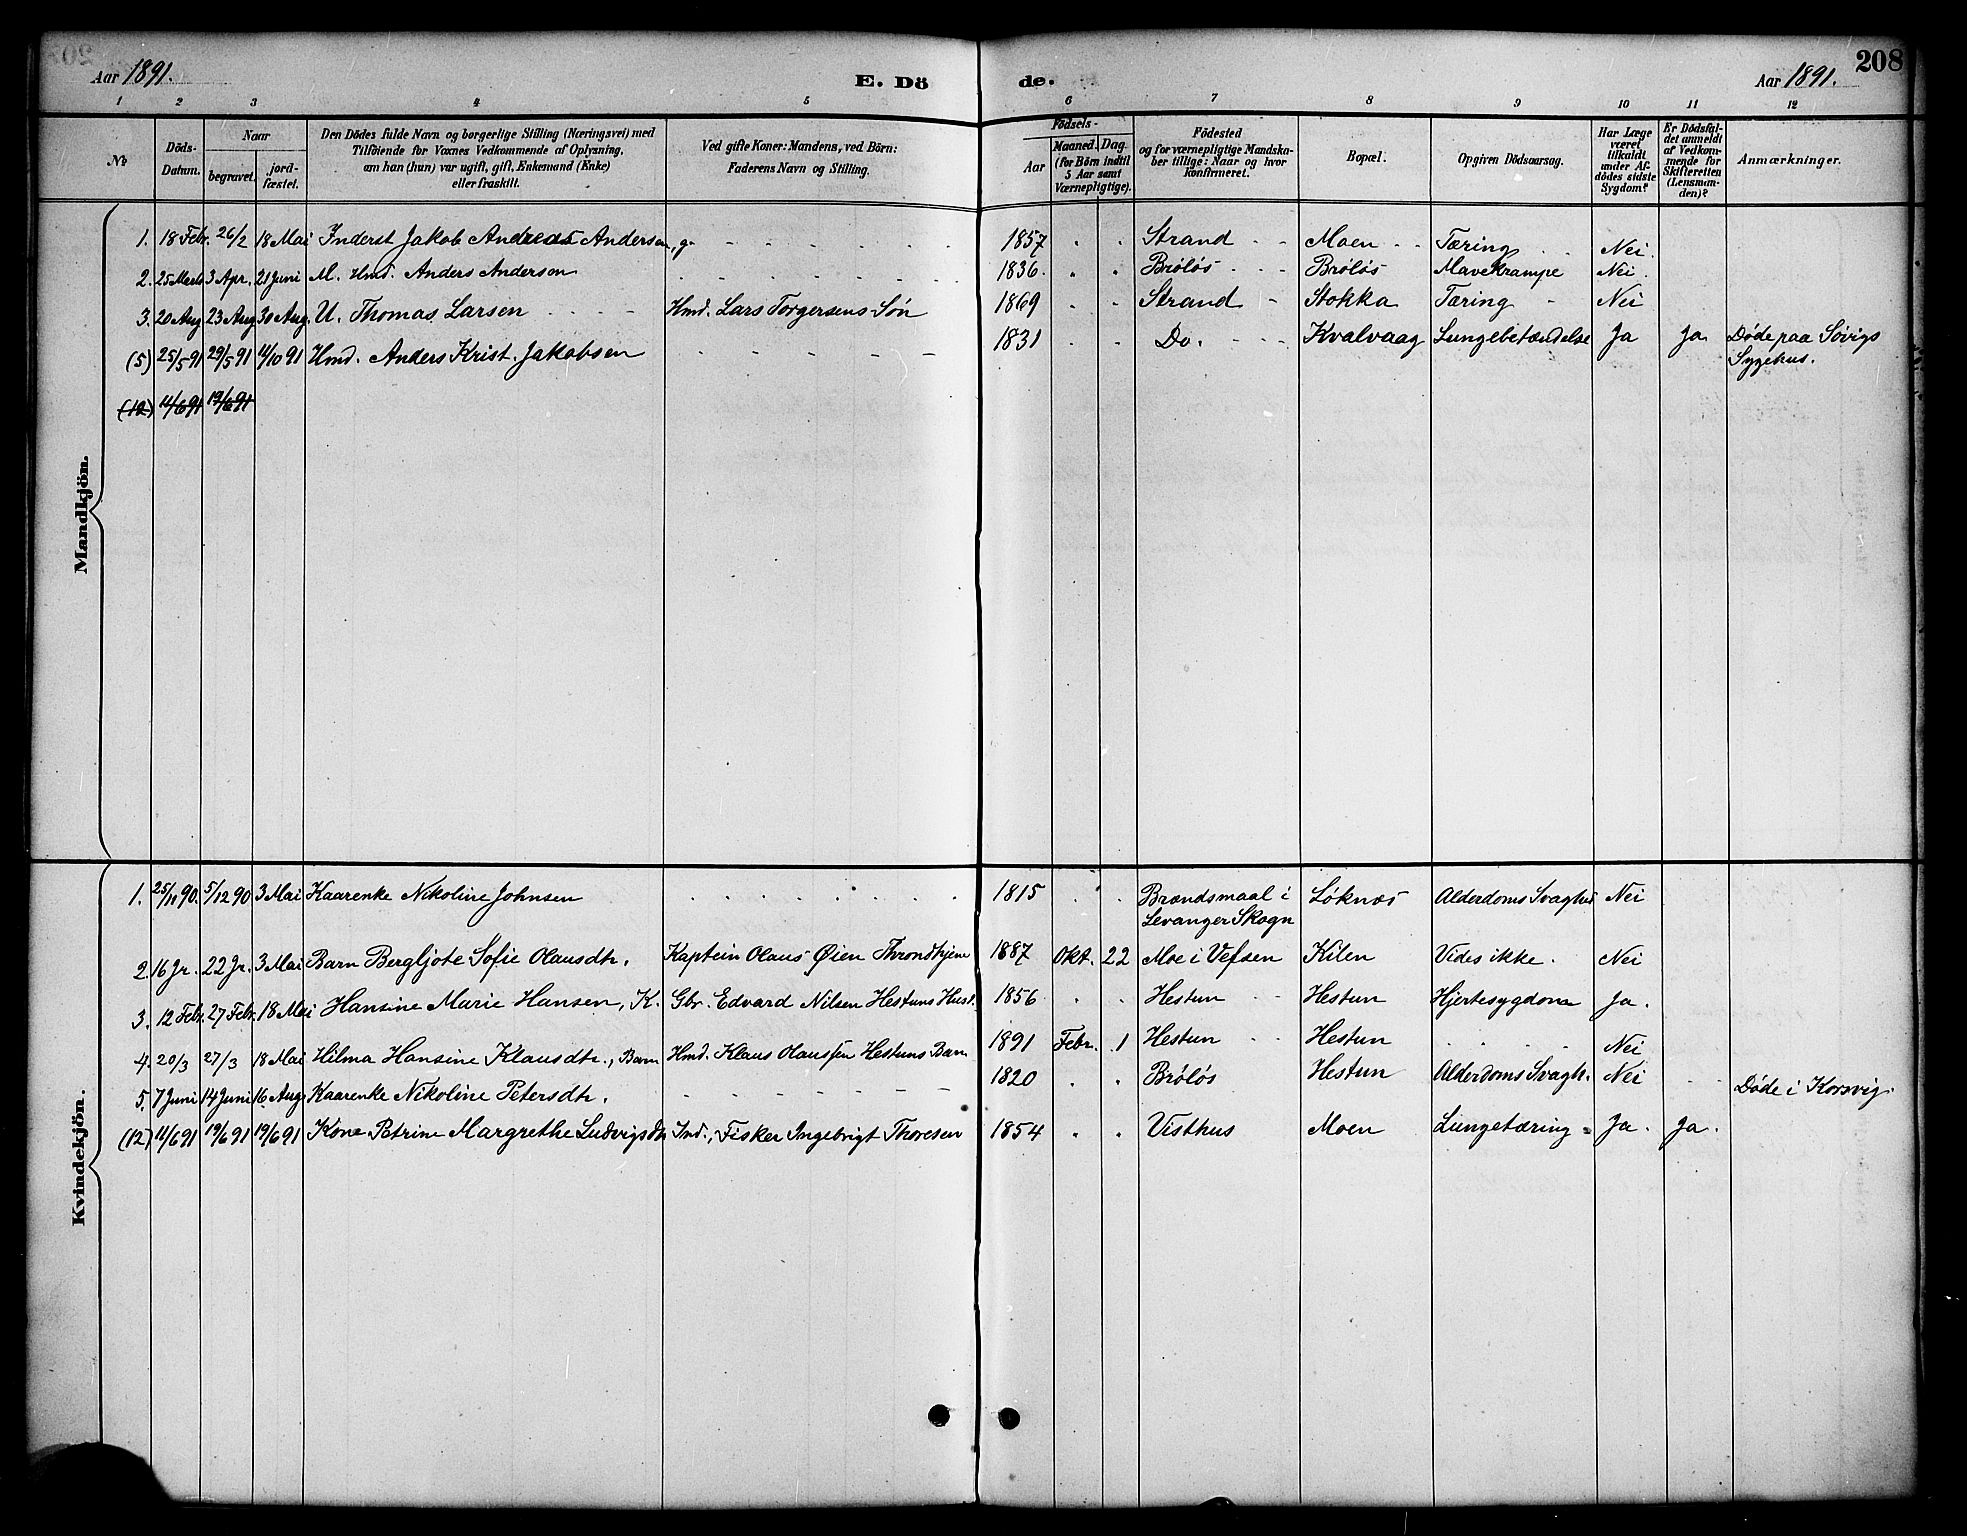 Aar 1891. E. Dö de. Aar 1891. 208
1 2 3 4 5 6 7 8 9 10 11 12
No
Döds-Datum.
Naar
begravet.
jord-fæstet.
Den Dödes fulde Navn og borgerlige Stilling (Næringsvei) med
Tilföiende for Voxnes Vedkommende af Oplysning,
om han (hun) var ugift, gift, Enkemand (Enke)
eller fraskilt.
Ved gifte Koner: Mandens, ved Börn:
Faderens Navn og Stilling.
Födsels-
Aar
Maaned. Dag.
(for Börn indtil
5 Aar samt
Værnepligtige).
Födested
og for værnepligtige Mandska-
ber tillige: Naar og hvor
konfirmeret.
Bopæl.
Opgiven Dödsaarsag.
Har Læge
været
tilkaldt
under Af-
dödes sidste
Sygdom?
Er Dödsfal-
det anmeldt
af Vedkom-
mende for
Skifteretten
(Lensman-
den)?
Anmærkninger.
Mandkjön.
1. 18 Febr. 26/2 18 Mai Inderst Jakob Andreas Andersen, g. 1857 Strand Moen Tæring Nei.
2. 25 Marts 3 Apr. 21 Juni M. Hmd. Anders Andersen 1836. Brøløs Brøløs Mavekrampe Nei.
3. 20 Aug 23 Aug 30 Aug. U. Thomas Larsen Hmd. Lars Torgersens Søn 1869 Strand Stokka Tæring Nei
(5) 25/5 91 29/5 91 4/10 91 Hmd. Anders Krist. Jakobsen 1831 Do. Kvalvaag Lungebetændelse Ja Ja Døde paa Søvigs
Sygehus.
(12) 11/6 91 19/6 91
Kvindekjön.
1. 25/11 90. 5/12 90 3 Mai Kaarenke Nikoline Johnsen 1815 Brændsmaal i Løknæs Alderdoms Svaghed Nei
Levanger Skogn
2. 16 Jr. 22 Jr. 3 Mai Barn Bergljote Sofie Olausdtr. Kaptein Olaus Øien Throndhjem 1887 Okt. 22 Moe i Vefsen Kilen Vides ikke. Nei
3. 12 Febr. 27 Febr. 18 Mai Hansine Marie Hansen, K. Gbr. Edvard Nilsen Hestuns Hust. 1856 Hestun Hestun Hjertesygdom Ja.
4. 20/3 27/3 18 Mai Hilma Hansine Klausdtr., Barn Hmd. Klaus Olaussen Hestuns Barn 1891 Febr. 1 Hestun Hestun Nei
5. 7 Juni 14 Juni 16 Aug. Kaarenke Nikoline Petersdtr. 1820 Brøløs Hestun Alderdoms Svagh. Nei Døde i Korsvig.
(12) 11/6 91 19/6 91 19/6 91 Kone Petrine Margrethe Ludvigsdtr Ind., Fisker Ingebrigt Thoresen 1854 Visthus Moen Lungetæring Ja. Ja.